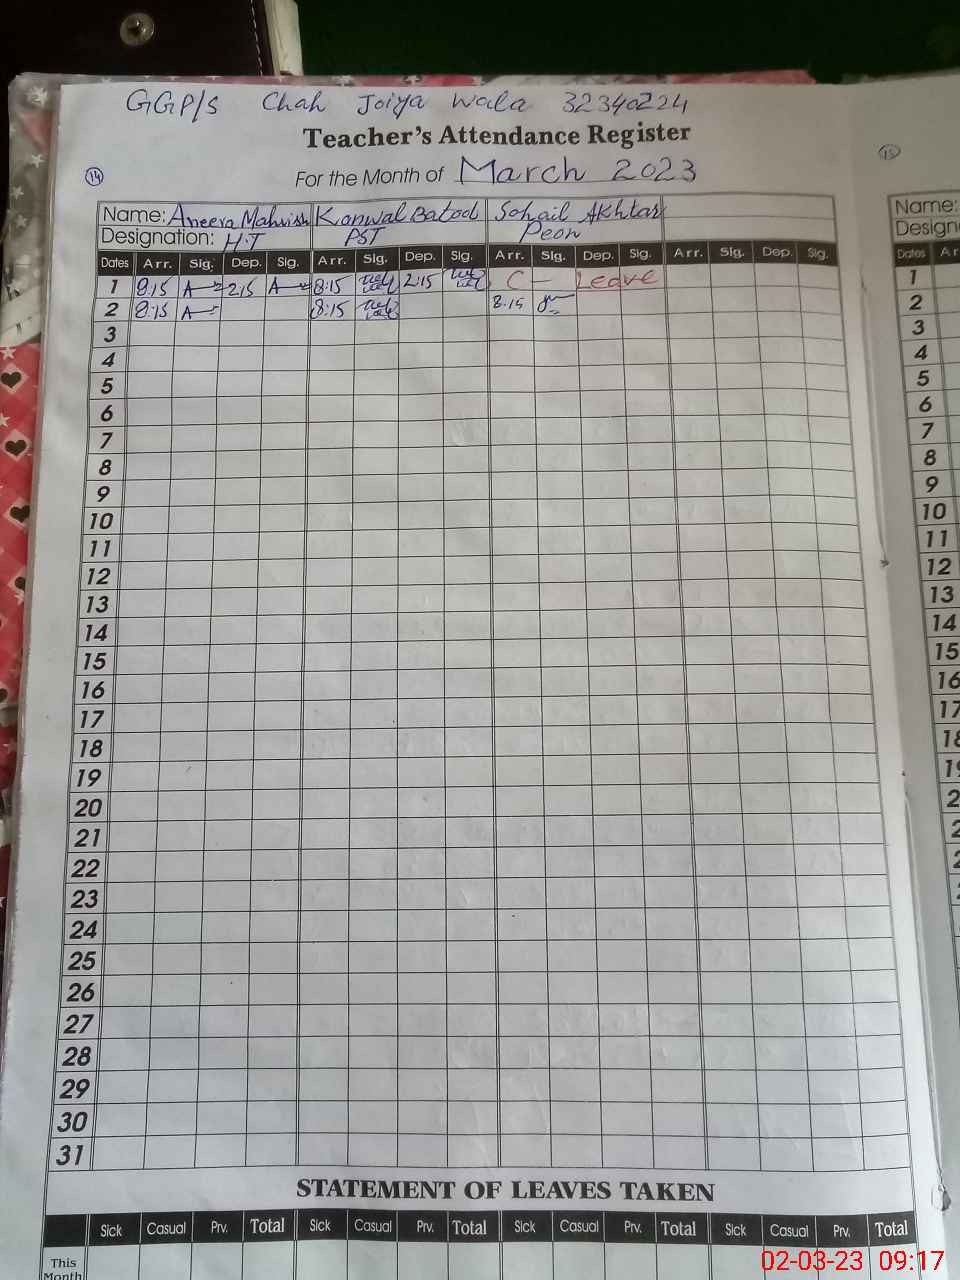 GGP/S Chah Joiya Wala 32340224
Teacher's Attendance Register
14
For the Month of March 2023
15
Name: Aneera Mahwish Konwal Batool Sohail Akhtar
Name:
Designation: H.T PST Peon
Dates Arr. Sig. Dep. Sig. Arr. Sig. Dep. Sig. Arr. Sig. Dep. Sig. Arr. Sig. Dep. Sig.
Dates
1 8:15 2:15 8:15 2:15 C - Leave
1
2 8:15 8:15 8.15
2
3
3
4
4
5
5
6
6
7
7
8
8
9
9
10
10
11
11
12
12
13
13
14
14
15
15
16
16
17
17
18
18
19
19
20
21
22
23
24
25
26
27
28
29
30
31
STATEMENT OF LEAVES TAKEN
Sick Casual Prv. Total Sick Casual Prv. Total Sick Casual Prv. Total Sick Casual Prv. Total
This
Month
02-03-23 09:17